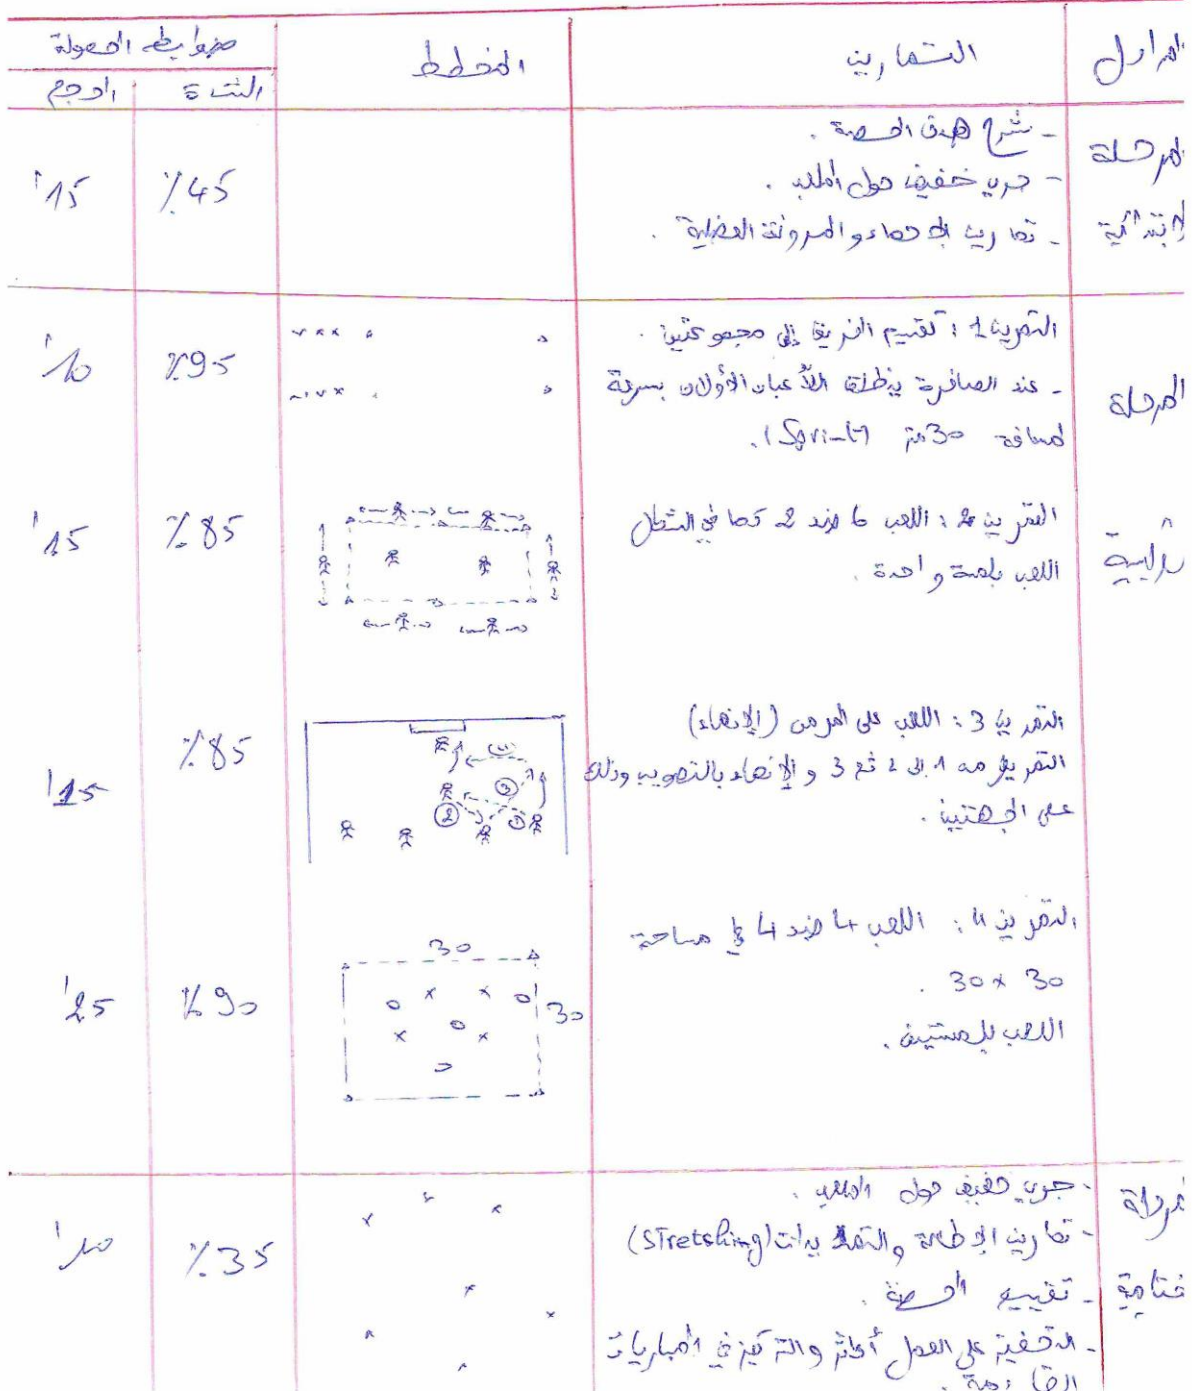 المراحل
التمارين
المخطط
ضوابط الحمولة
الشدة
الحجم
المرحلة
الابتدائية
- شرح هدف الحصة .
- جري خفيف حول الملعب .
- تمارين الإحماء والمرونة العضلية .
45%
15'
المرحلة
التدريبية
التمرين 1 : تقسيم الفريق إلى مجموعتين .
- عند الصافرة ينطلق اللاعبان الأولان بسرعة
لمسافة 30 متر (Sprint).
95%
10'
التمرين 2 : اللعب 6 ضد 2 كما في الشكل
اللعب بلمسة واحدة .
85%
15'
التمرين 3 : اللعب على المرمى (الإنهاء)
التمرير من 1 إلى 2 ثم 3 و الإنهاء بالتصويب وذلك
على الجهتين .
1
2
3
85%
15'
التمرين 4 : اللعب 4 ضد 4 في مساحة
30 × 30 .
اللعب بلمستين .
30
30
90%
25'
المرحلة
الختامية
- جري خفيف حول الملعب .
- تمارين الإطالة والتمديدات (STretshing)
- تقييم الحصة .
- التحفيز على العمل أكثر والتركيز في المباريات
القادمة .
35%
10'